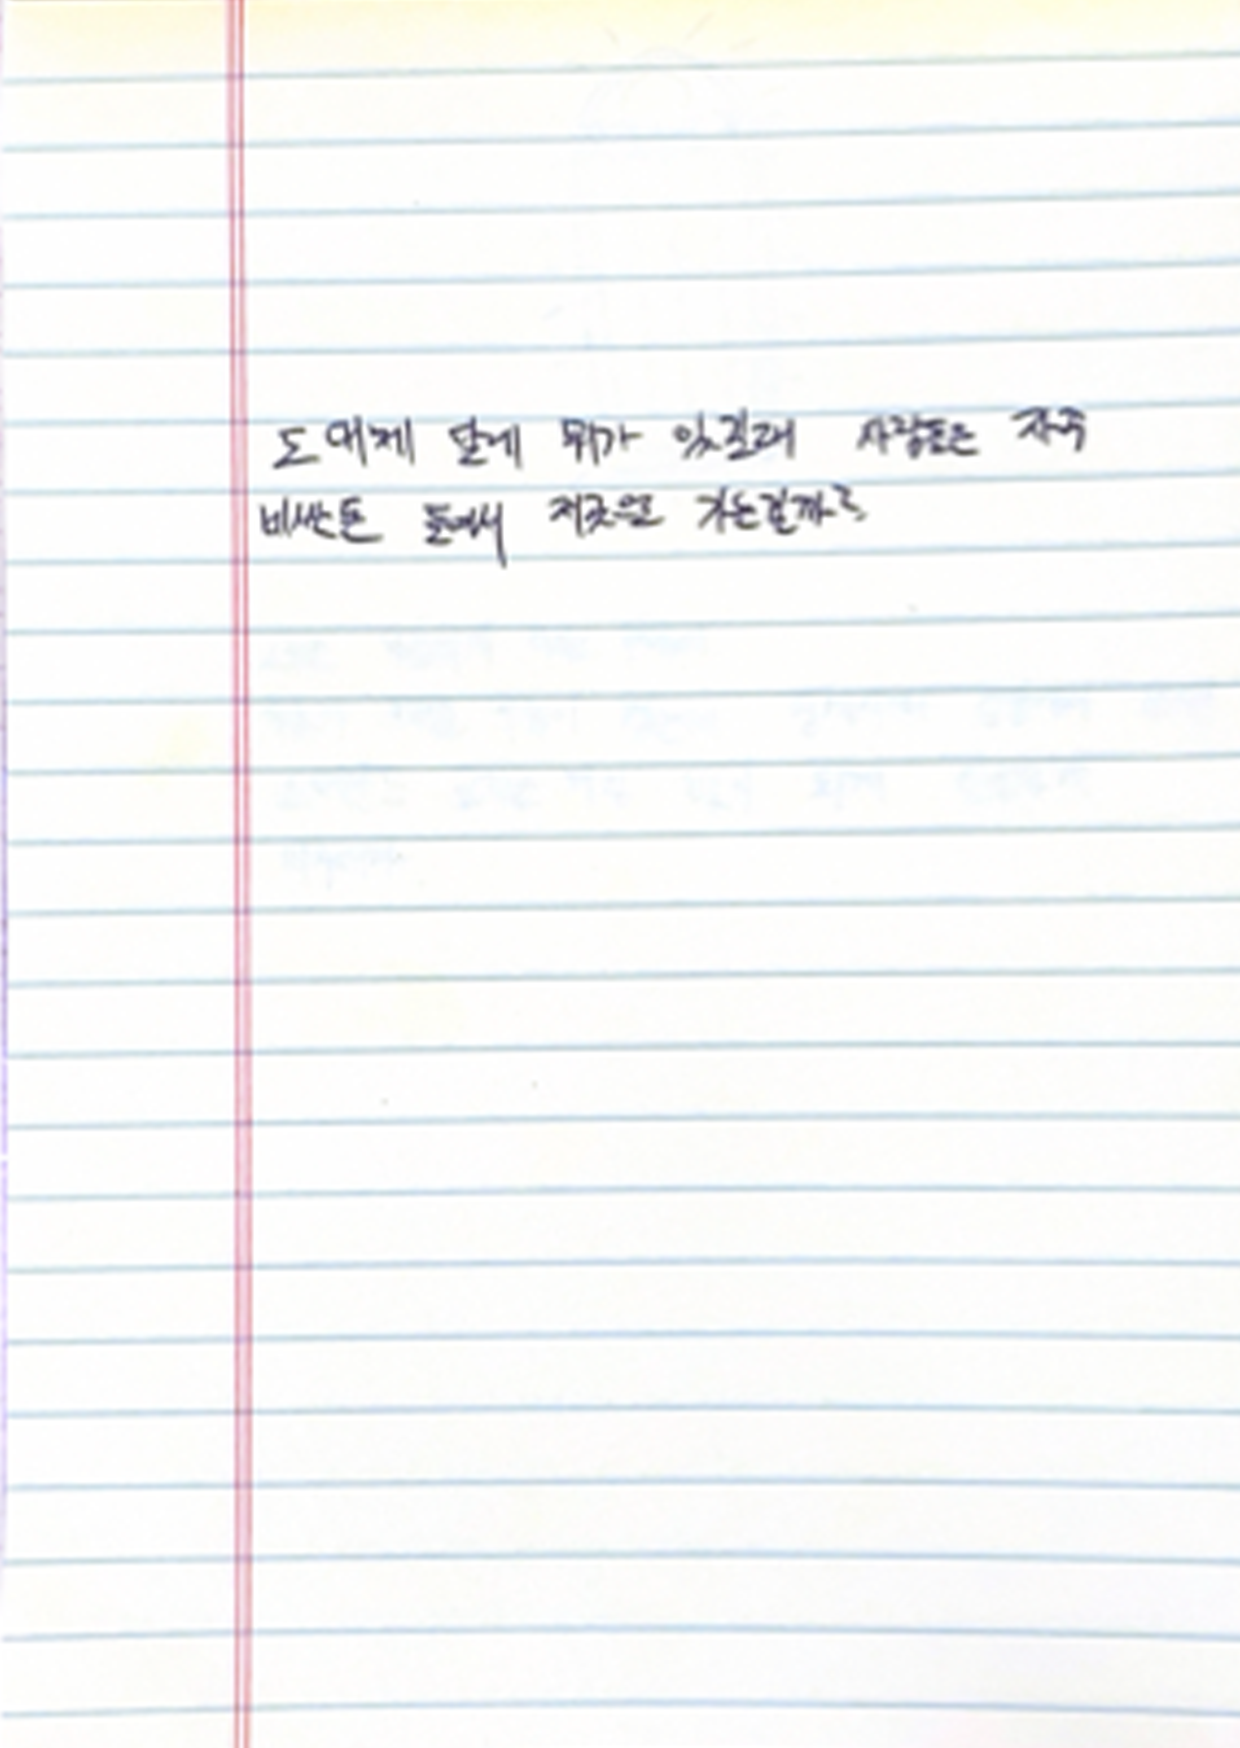 도대체 달에 뭐가 있길래 사람들은 자꾸
비싼돈 들여서 저곳으로 가는걸까?